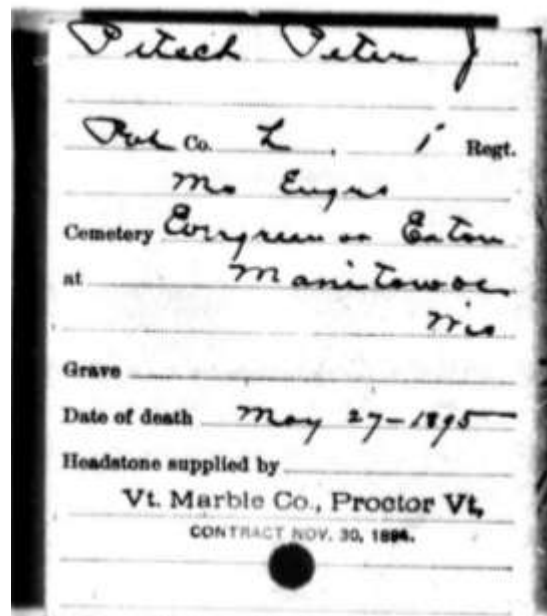 Pitsch Peter J
Pvt Co. L, 1 Regt.
Mo Engrs
Cemetery Evergreen or Eaton
at Manitowoc
Wis
Grave
Date of death May 27-1895
Headstone supplied by
Vt. Marble Co., Proctor Vt,
CONTRACT NOV. 30, 1894.